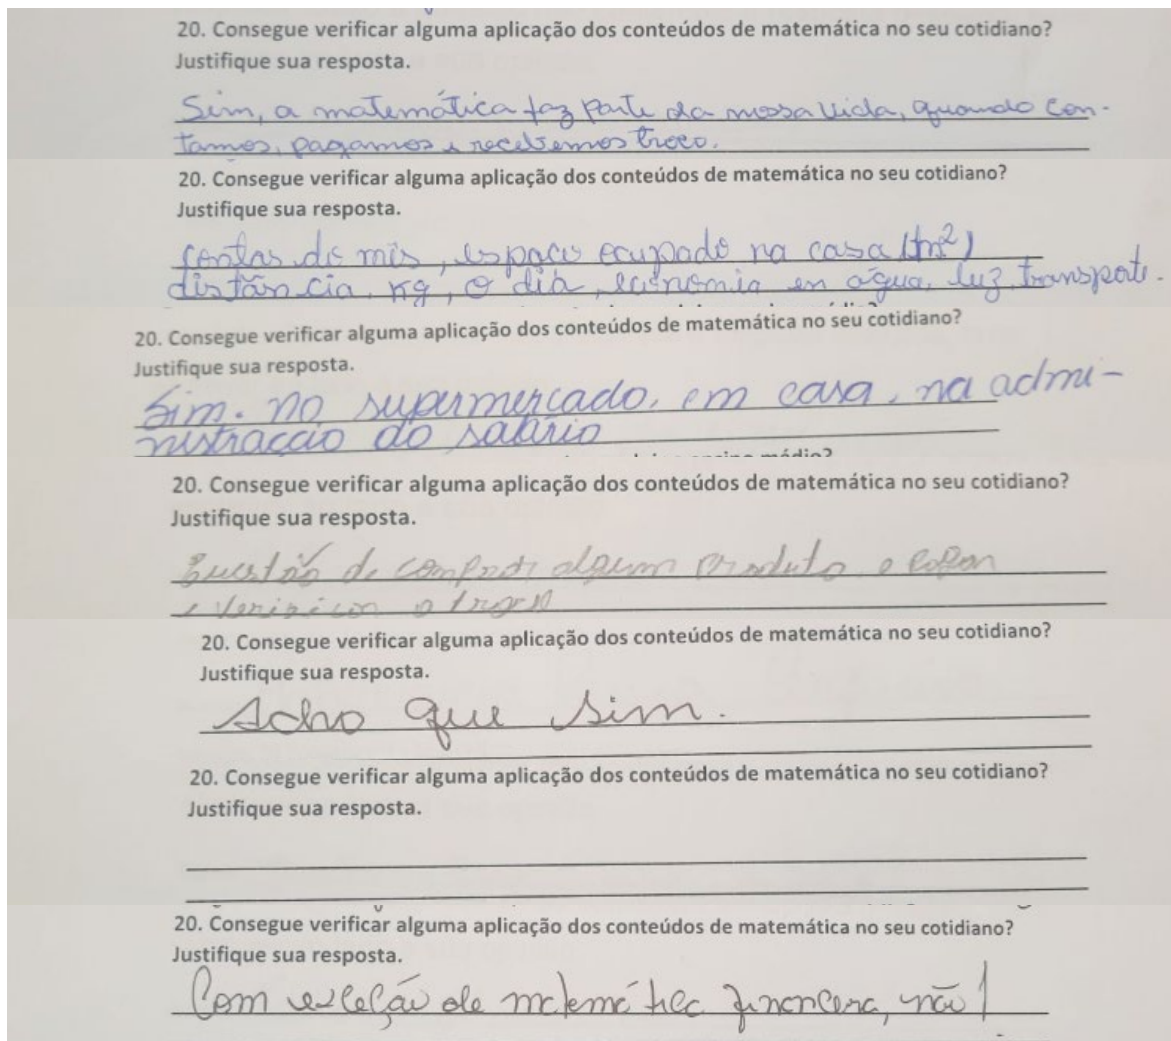 20. Consegue verificar alguma aplicação dos conteúdos de matemática no seu cotidiano?
Justifique sua resposta.
Sim, a matemática faz parte da nossa vida, quando con-
tamos, pagamos e recebemos troco.
20. Consegue verificar alguma aplicação dos conteúdos de matemática no seu cotidiano?
Justifique sua resposta.
Contas do mês, espaço ocupado na casa (m²)
distância, kg, o dia, economia en água, luz, transporte.
20. Consegue verificar alguma aplicação dos conteúdos de matemática no seu cotidiano?
Justifique sua resposta.
Sim. no supermercado, em casa, na admi-
nistração do salário
20. Consegue verificar alguma aplicação dos conteúdos de matemática no seu cotidiano?
Justifique sua resposta.
Questão de comprar algum produto e
o troco
20. Consegue verificar alguma aplicação dos conteúdos de matemática no seu cotidiano?
Justifique sua resposta.
Acho que sim.
20. Consegue verificar alguma aplicação dos conteúdos de matemática no seu cotidiano?
Justifique sua resposta.
20. Consegue verificar alguma aplicação dos conteúdos de matemática no seu cotidiano?
Justifique sua resposta.
Com exceção de matemática financera, não!